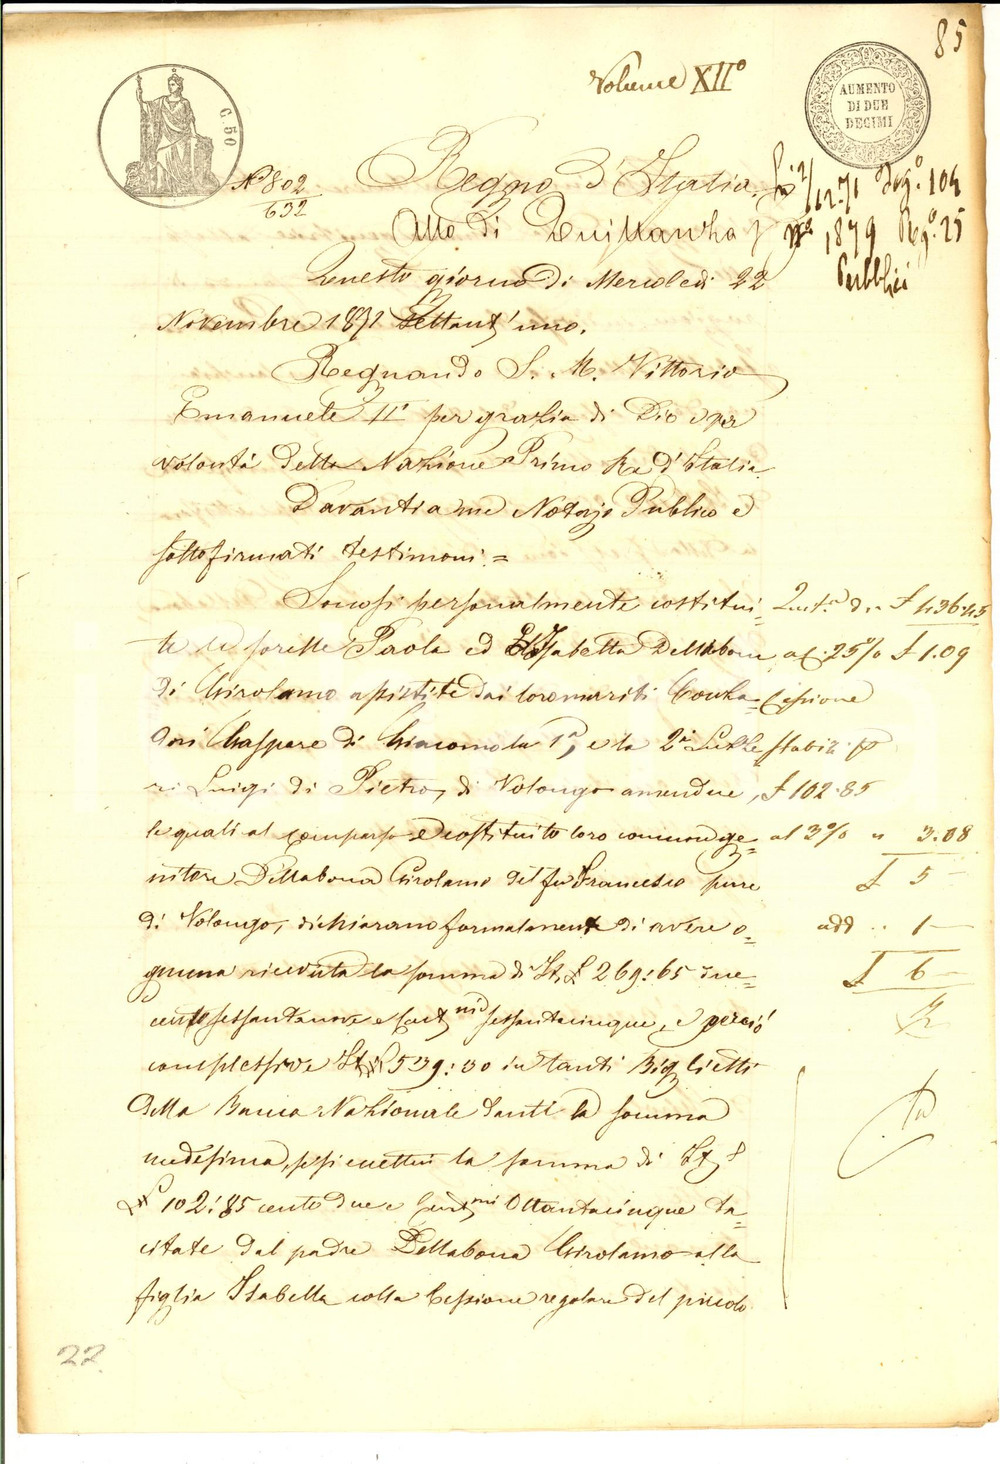 85
Volume XIIº
C. 50
AUMENTO
DI DUE
DECIMI
Nº 802
632
Regno d'Italia
Atto di Quittanza
1879 Regº. 25
Pubblici
Questo giorno di Mercoledi 22
Novembre 1871 Settant'uno.
Regnando S. M. Vittorio
Emanuele IIº per grazia di Dio e per
volontá della Nazione Primo Re d'Italia
Davanti a me Notajo Pubblico e
sottofirmati testimoni =
Sonosi personalmente costitui=
te le sorelle Paola ed Isabetta Dellabona
di Girolamo assistite dai loro mariti Conza=
dori Gaspare di Giacomo la 1ª, e la 2ª
ri Luigi di Pietro, di Volongo amendue,
le quali al comparso e costituito loro comun ge=
nitore Dellabona Girolamo del fu Francesco pure
di Volongo, dichiarano formalmente di avere o=
gnuna ricevuta la somma di It. £ 269:65 due=
cento sessantanove e Cent.mi sessantacinque, e perció
complessive It. £ 539:30 in tanti Biglietti
della Banca Nazionale tanti la somma
medesima, la somma di It.
£ 102:85 cento due e Cent.mi Ottantacinque
dal padre Dellabona Girolamo alla
figlia Isabella colla Cessione regolare del piccolo
£ 436.45
al 25% £ 1.09
Cessione
stabili
£ 102.85
al 3% " 3.08
£ 5 —
add .. 1 —
£ 6 —
22